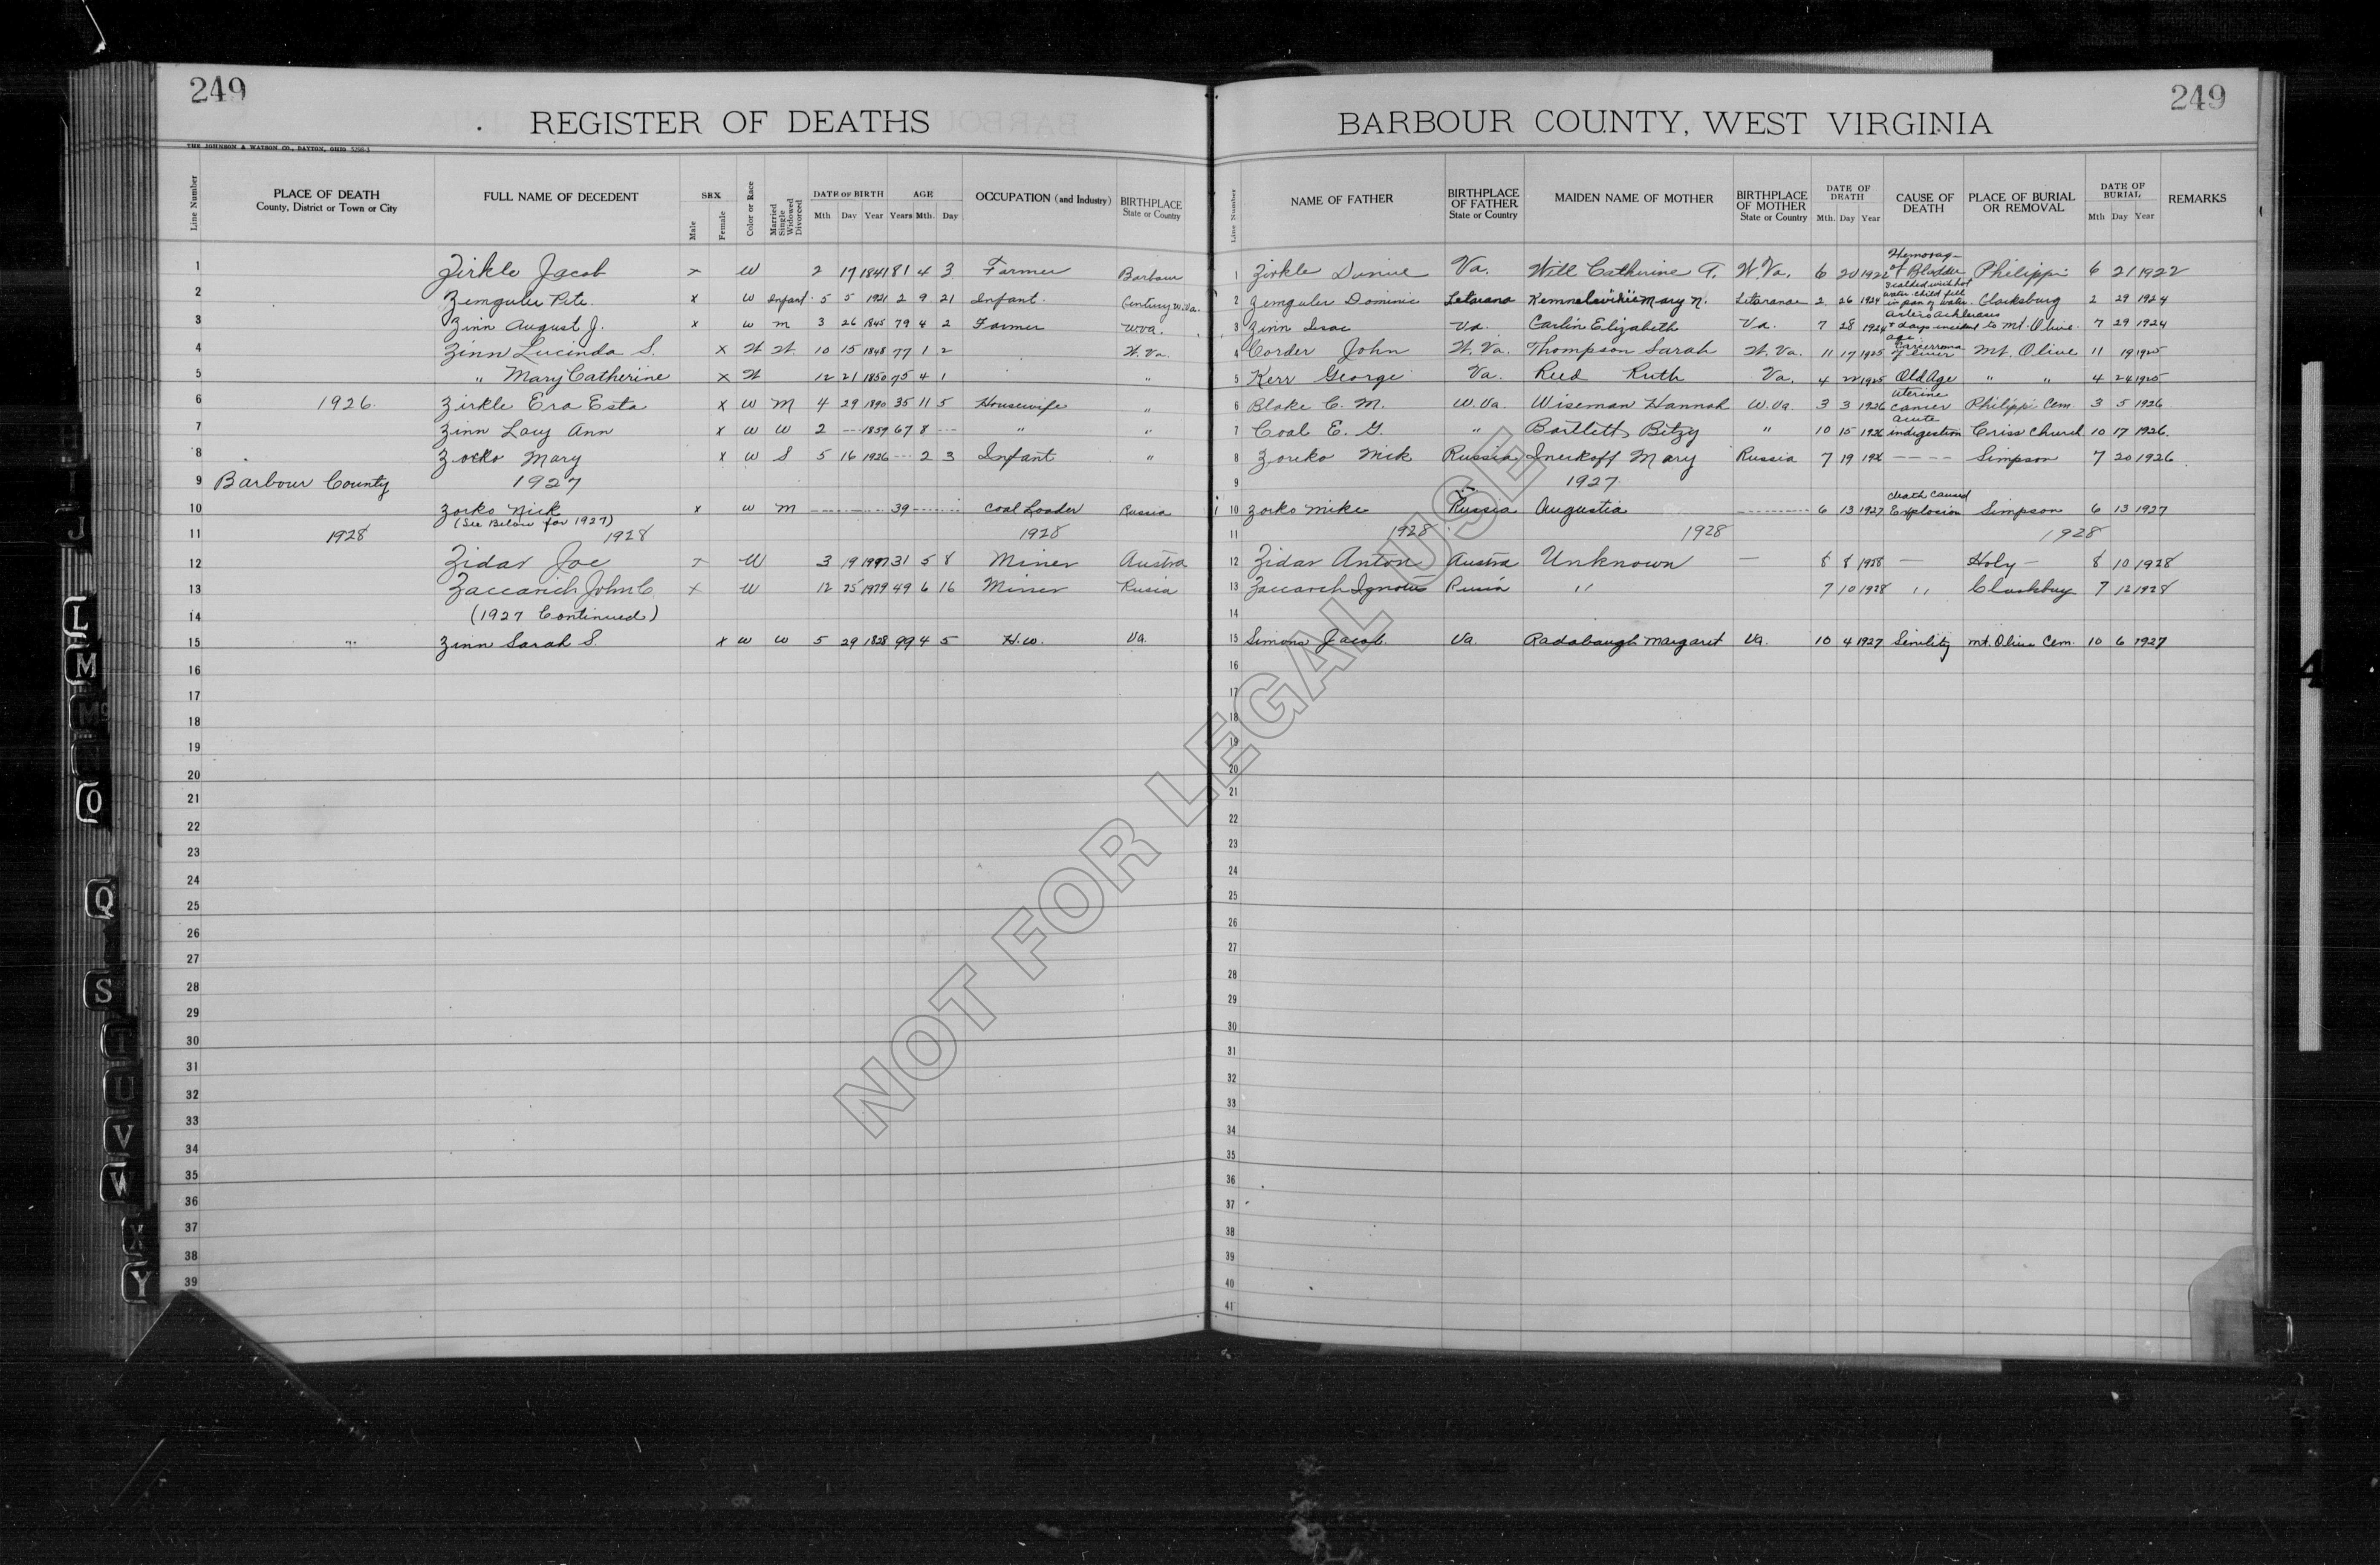 249
249
REGISTER OF DEATHS
BARBOUR COUNTY, WEST VIRGINIA
THE JOHNSON & WATSON CO., DAYTON, OHIO
Line Number PLACE OF DEATH County, District or Town or City FULL NAME OF DECEDENT SEX Male Female Color or Race Married Single Widowed Divorced DATE OF BIRTH Mth Day Year AGE Years Mth. Day OCCUPATION (and Industry) BIRTHPLACE State or Country
Line Number NAME OF FATHER BIRTHPLACE OF FATHER State or Country MAIDEN NAME OF MOTHER BIRTHPLACE OF MOTHER State or Country DATE OF DEATH Mth. Day Year CAUSE OF DEATH PLACE OF BURIAL OR REMOVAL DATE OF BURIAL Mth Day Year REMARKS
1 Zirkle Jacob x W 2 17 1841 81 4 3 Farmer Barbour 1 Zirkle Va. Will Catherine W.Va. 6 20 1922 Hemorag- of Bladder Philippi 6 21 1922
2 Zemguler Pete x W Infant 5 5 1921 2 9 21 Infant Century W.Va. 2 Zemguler Dominic Mary 2 26 1924 Scalded with hot water child fell in pan of water. Clarksburg 2 29 1924
3 Zinn August J. x W m 3 26 1845 79 4 2 Farmer W.Va. 3 Zinn Isac Va. Carlin Elizabeth Va. 7 28 1924 days incident to age. Mt. Olive. 7 29 1924
4 Zinn Lucinda S. x W W. 10 15 1848 77 1 2 W. Va. 4 Corder John W. Va. Thompson Sarah W. Va. 11 17 1925 of liver Mt. Olive 11 19 1925
5 " Mary Catherine x W 12 21 1850 75 4 1 " 5 Kerr George Va. Reed Ruth Va. 4 22 1925 Old Age " " 4 24 1925
6 1926. Zirkle Era Esta x W M 4 29 1890 35 11 5 Housewife " 6 Blake C. M. W.Va. Wiseman Hannah W.Va. 3 3 1926 uterine cancer Philippi Cem. 3 5 1926
7 Zinn Lucy Ann x W W 2 --- 1859 67 8 --- " " 7 Coal E. G. " Bartlett Betzy " 10 15 1926 acute indigestion Criss Church 10 17 1926.
8 Zocko Mary x W S 5 16 1926 --- 2 3 Infant " 8 Zoreko Mik Russia Mary Russia 7 19 192 ---- Simpson 7 20 1926
9 Barbour County 1927 9 1927
10 Zorko Nick x W m --- 39 --- Coal Loader Russia 10 Zorko Mike Russia Augustia --- 6 13 1927 death caused Explosion Simpson 6 13 1927
(See Below for 1927)
11 1928 1928 1928 11 1928 1928 1928
12 Zidar Joe x W 3 19 31 5 8 Miner Austra 12 Zidar Anton Austra Unknown — 8 8 1928 — Holy — 8 10 1928
13 Zaccarich John C. x W 12 25 1979 49 6 16 Miner Rusia 13 Zaccarch Rusia " 7 10 1928 " 7 12 1928
14 (1927 Continued) 14
15 " Zinn Sarah S. x W W 5 29 1828 99 4 5 H.W. Va. 15 Simons Jacob. Va. Radabaugh Margaret Va. 10 4 1927 Senility Mt. Olive Cem. 10 6 1927
16 16
17 17
18 18
19 19
20 20
21 21
22 22
23 23
24 24
25 25
26 26
27 27
28 28
29 29
30 30
31 31
32 32
33 33
34 34
35 35
36 36
37 37
38 38
39 39
40
41
NOT FOR LEGAL USE
J
L
M
Mc
O
Q
S
T
U
V
W
X
Y
4